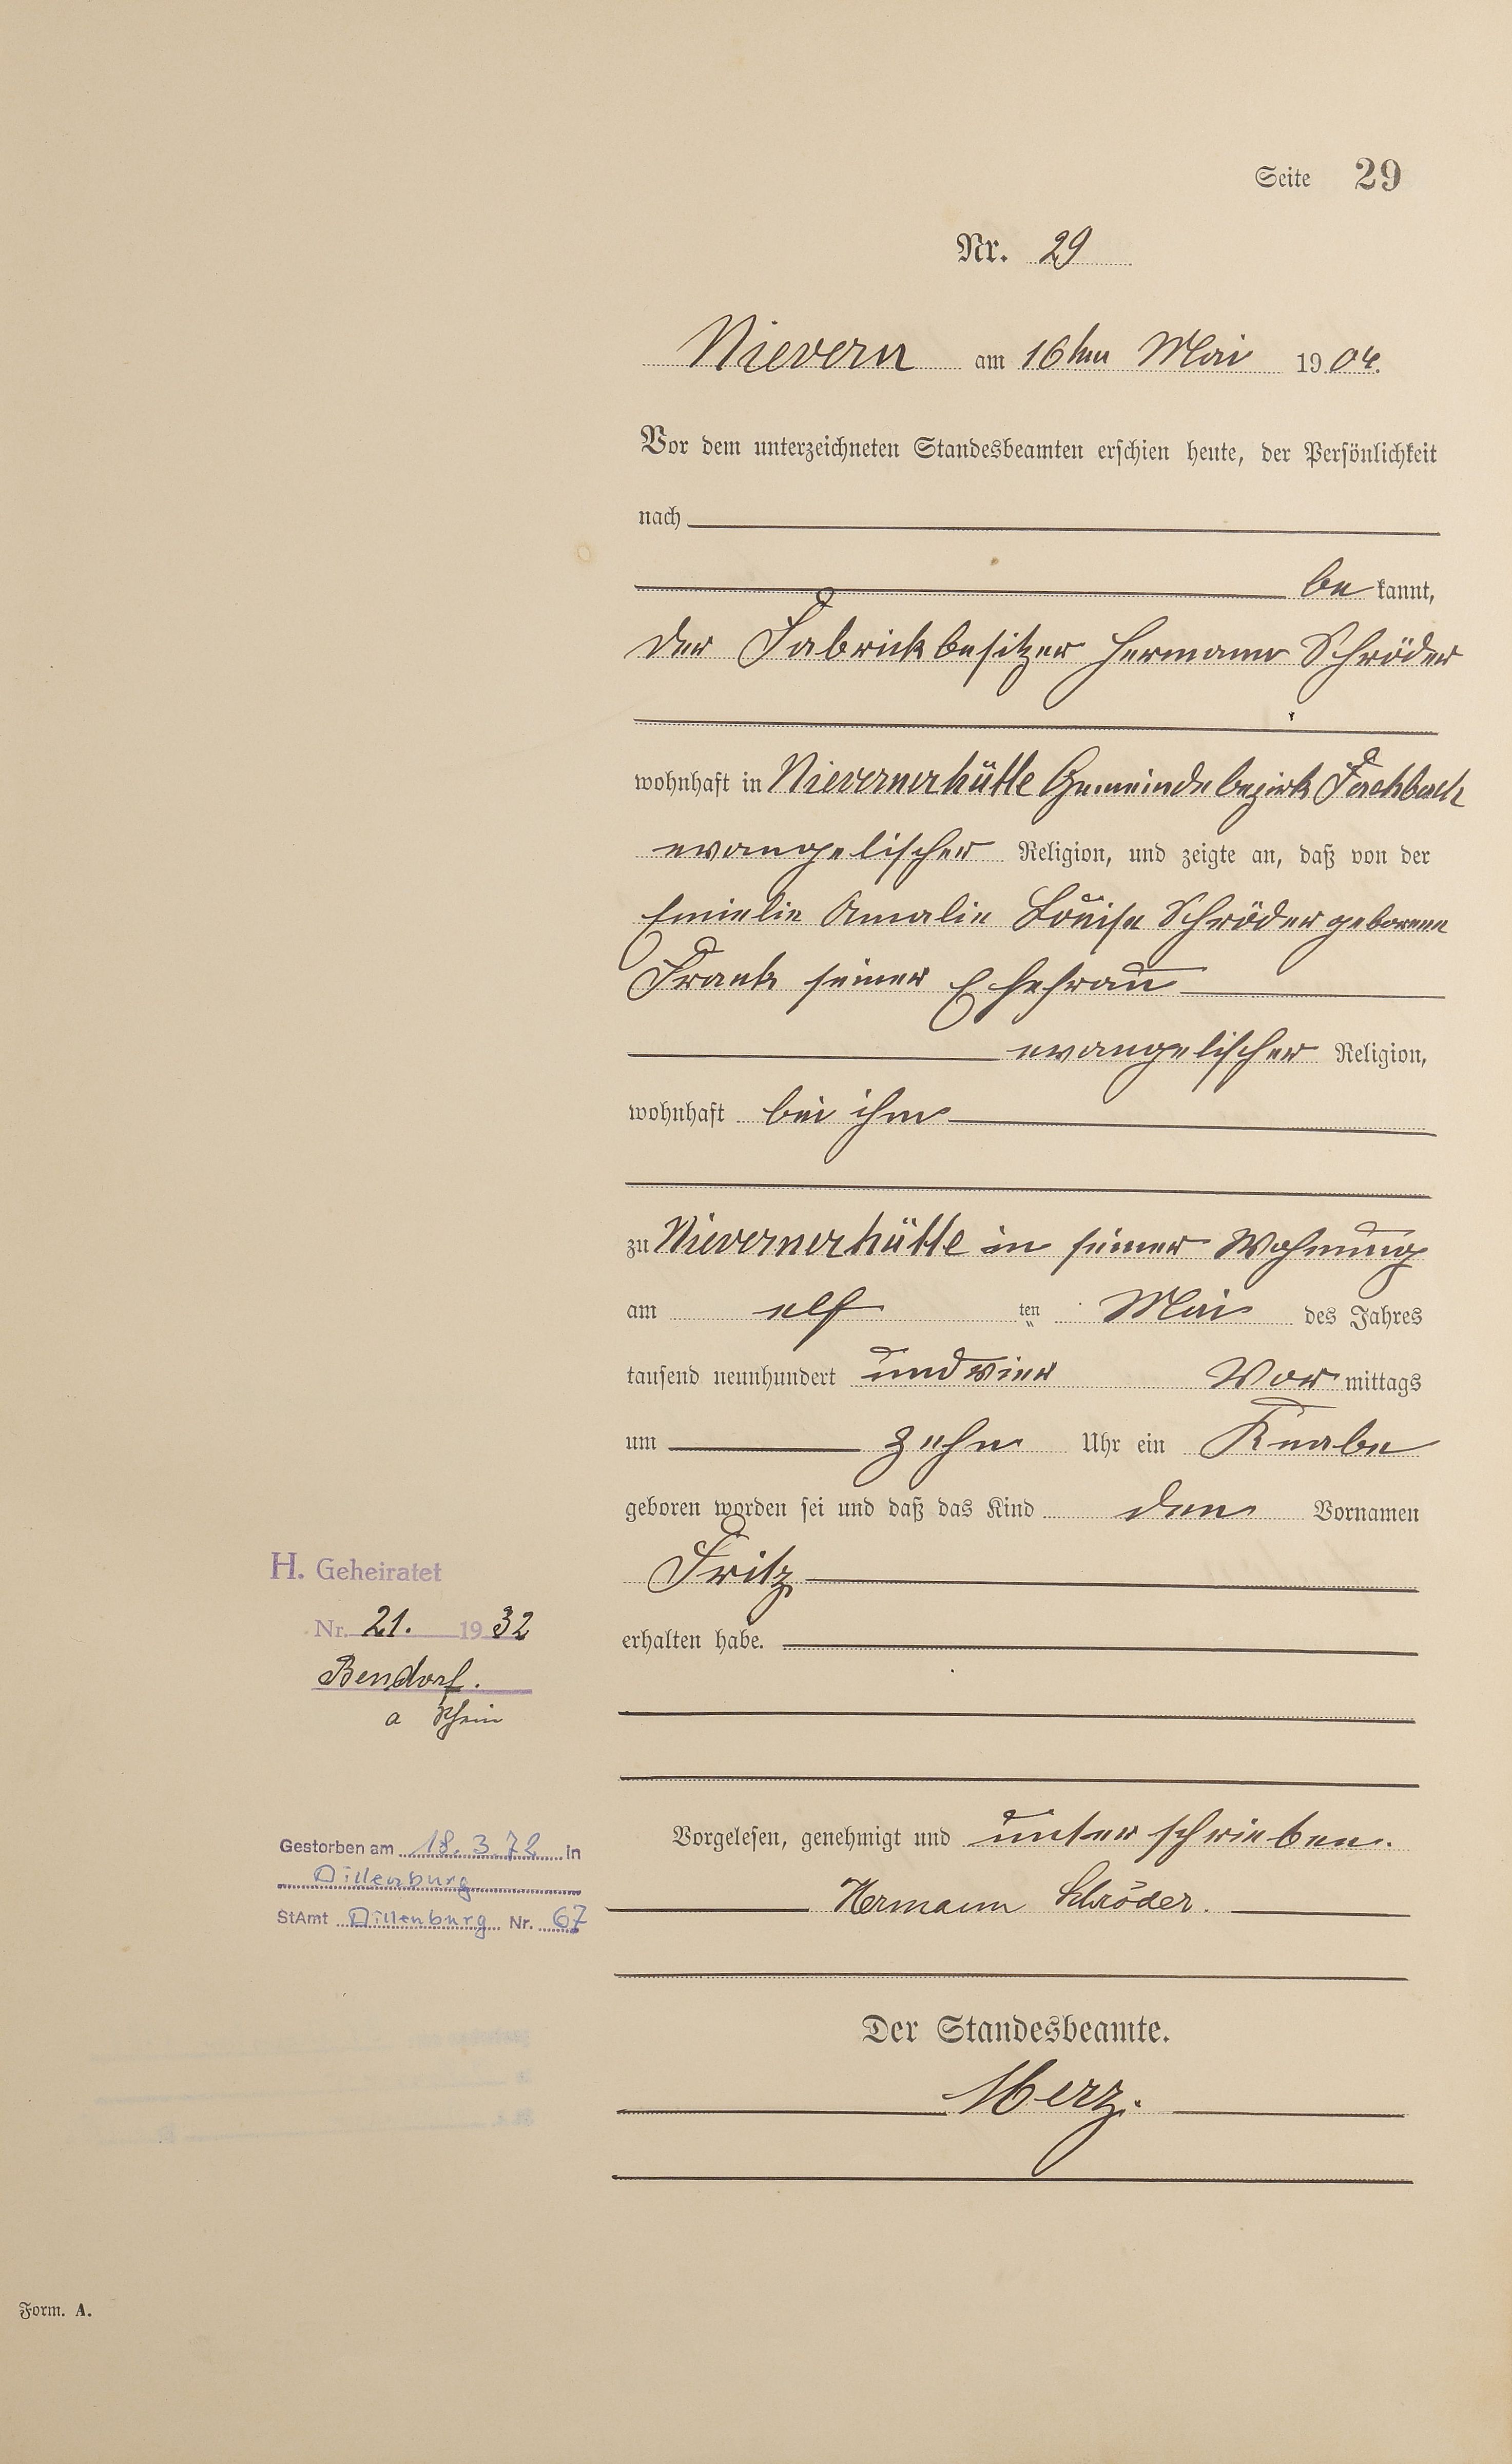 Seite 29
Nr. 29
Nievern am 16ten Mai 1904.
Vor dem unterzeichneten Standesbeamten erschien heute, der Persönlichkeit
nach
be kannt,
der Fabrickbesitzer Hermann Schröder
wohnhaft in Nievernerhütte Gemeindebezirk Fachbach
evangelischer Religion, und zeigte an, daß von der
Emielie Amalie Louise Schröder geborene
Frank seiner Ehefrau
evangelischer Religion,
wohnhaft bei ihm
zu Nievernerhütte in seiner Wohnung
am elf ten Mai des Jahres
tausend neunhundert und vier Vor mittags
um zehn Uhr ein Knabe
geboren worden sei und daß das Kind den Vornamen
Fritz
erhalten habe.
Vorgelesen, genehmigt und unterschrieben.
Hermann Schröder.
Der Standesbeamte.
Merz.
H. Geheiratet
Nr. 21. 1932
Bendorf.
a Rhein
Gestorben am 18.3.72 in
Dillenburg
StAmt Dillenburg Nr. 67
Form. A.